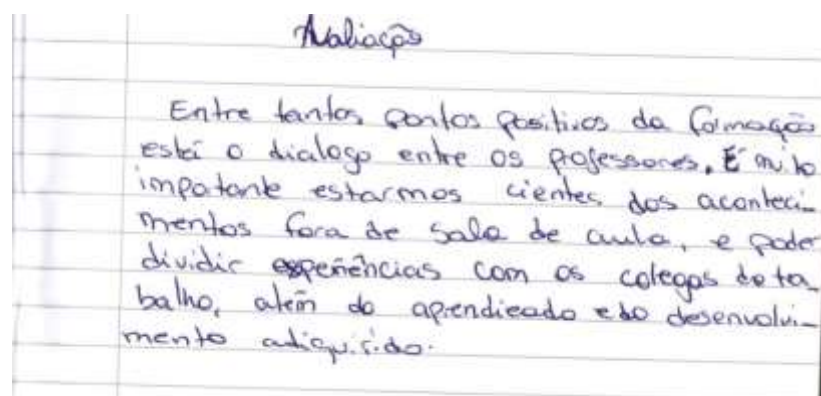 Avaliação
Entre tantos pontos positivos da formação
está o dialogo entre os professores. É muito
impotante estarmos cientes dos aconteci-
mentos fora de sala de aula, e poder
dividir experiências com os colegas de ta-
balho, além do aprendizado e do desenvolvi-
mento adiquirido.